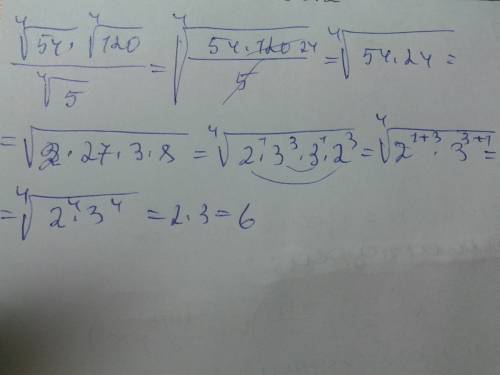 ⁴√54 · ⁴√120 / ⁴√5 = ⁴√(54 · 120 24 / 5) = ⁴√(54 · 24) =
= √(2 · 27 · 3 · 8) = ⁴√(2¹ · 3³ · 3¹ · 2³) = ⁴√(2¹⁺³ · 3³⁺¹) =
= ⁴√(2⁴ · 3⁴) = 2 · 3 = 6